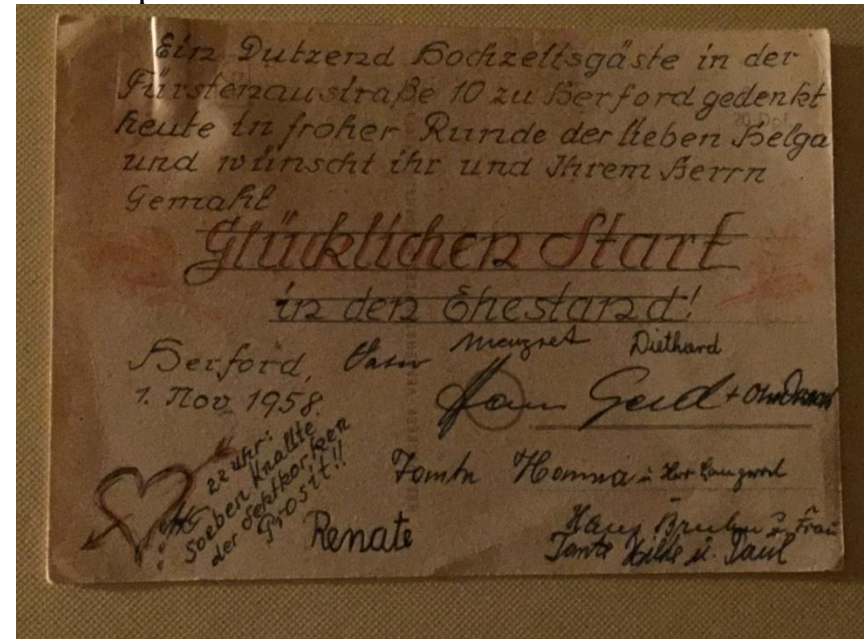 Ein Dutzend Hochzeitsgäste in der
Fürstenaustraße 10 zu Herford gedenkt
heute in froher Runde der lieben Helga
und wünscht ihr und Ihrem Herrn
Gemahl
Glücklichen Start
in den Ehestand!
Herford, Margret Diethard
1. Nov. 1958. Gerd +
22 Uhr:
Soeben knallte
der Sektkorken
Prosit!!
Tante Hanna u.
Renate
Hans Bruhn u. Frau
Tante Hilde u. Paul